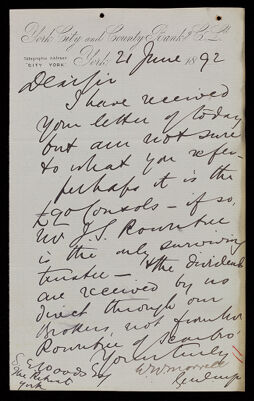 York City and County Bank Ld.
Telegraphic Address
"CITY YORK"
York 21 June 1892
Dear Sir
I have received
your letter of today
but am not sure
to what you refer—
perhaps it is the
£90 Consols — if so,
Mr J.S. Rowntree
is the only surviving
trustee — & the dividends
are received by us
direct through our
Brokers, not from Mr
Rowntree of Scarbro'
Yours truly
W W Morrell
S. E. Woods Esq
The Retreat
York